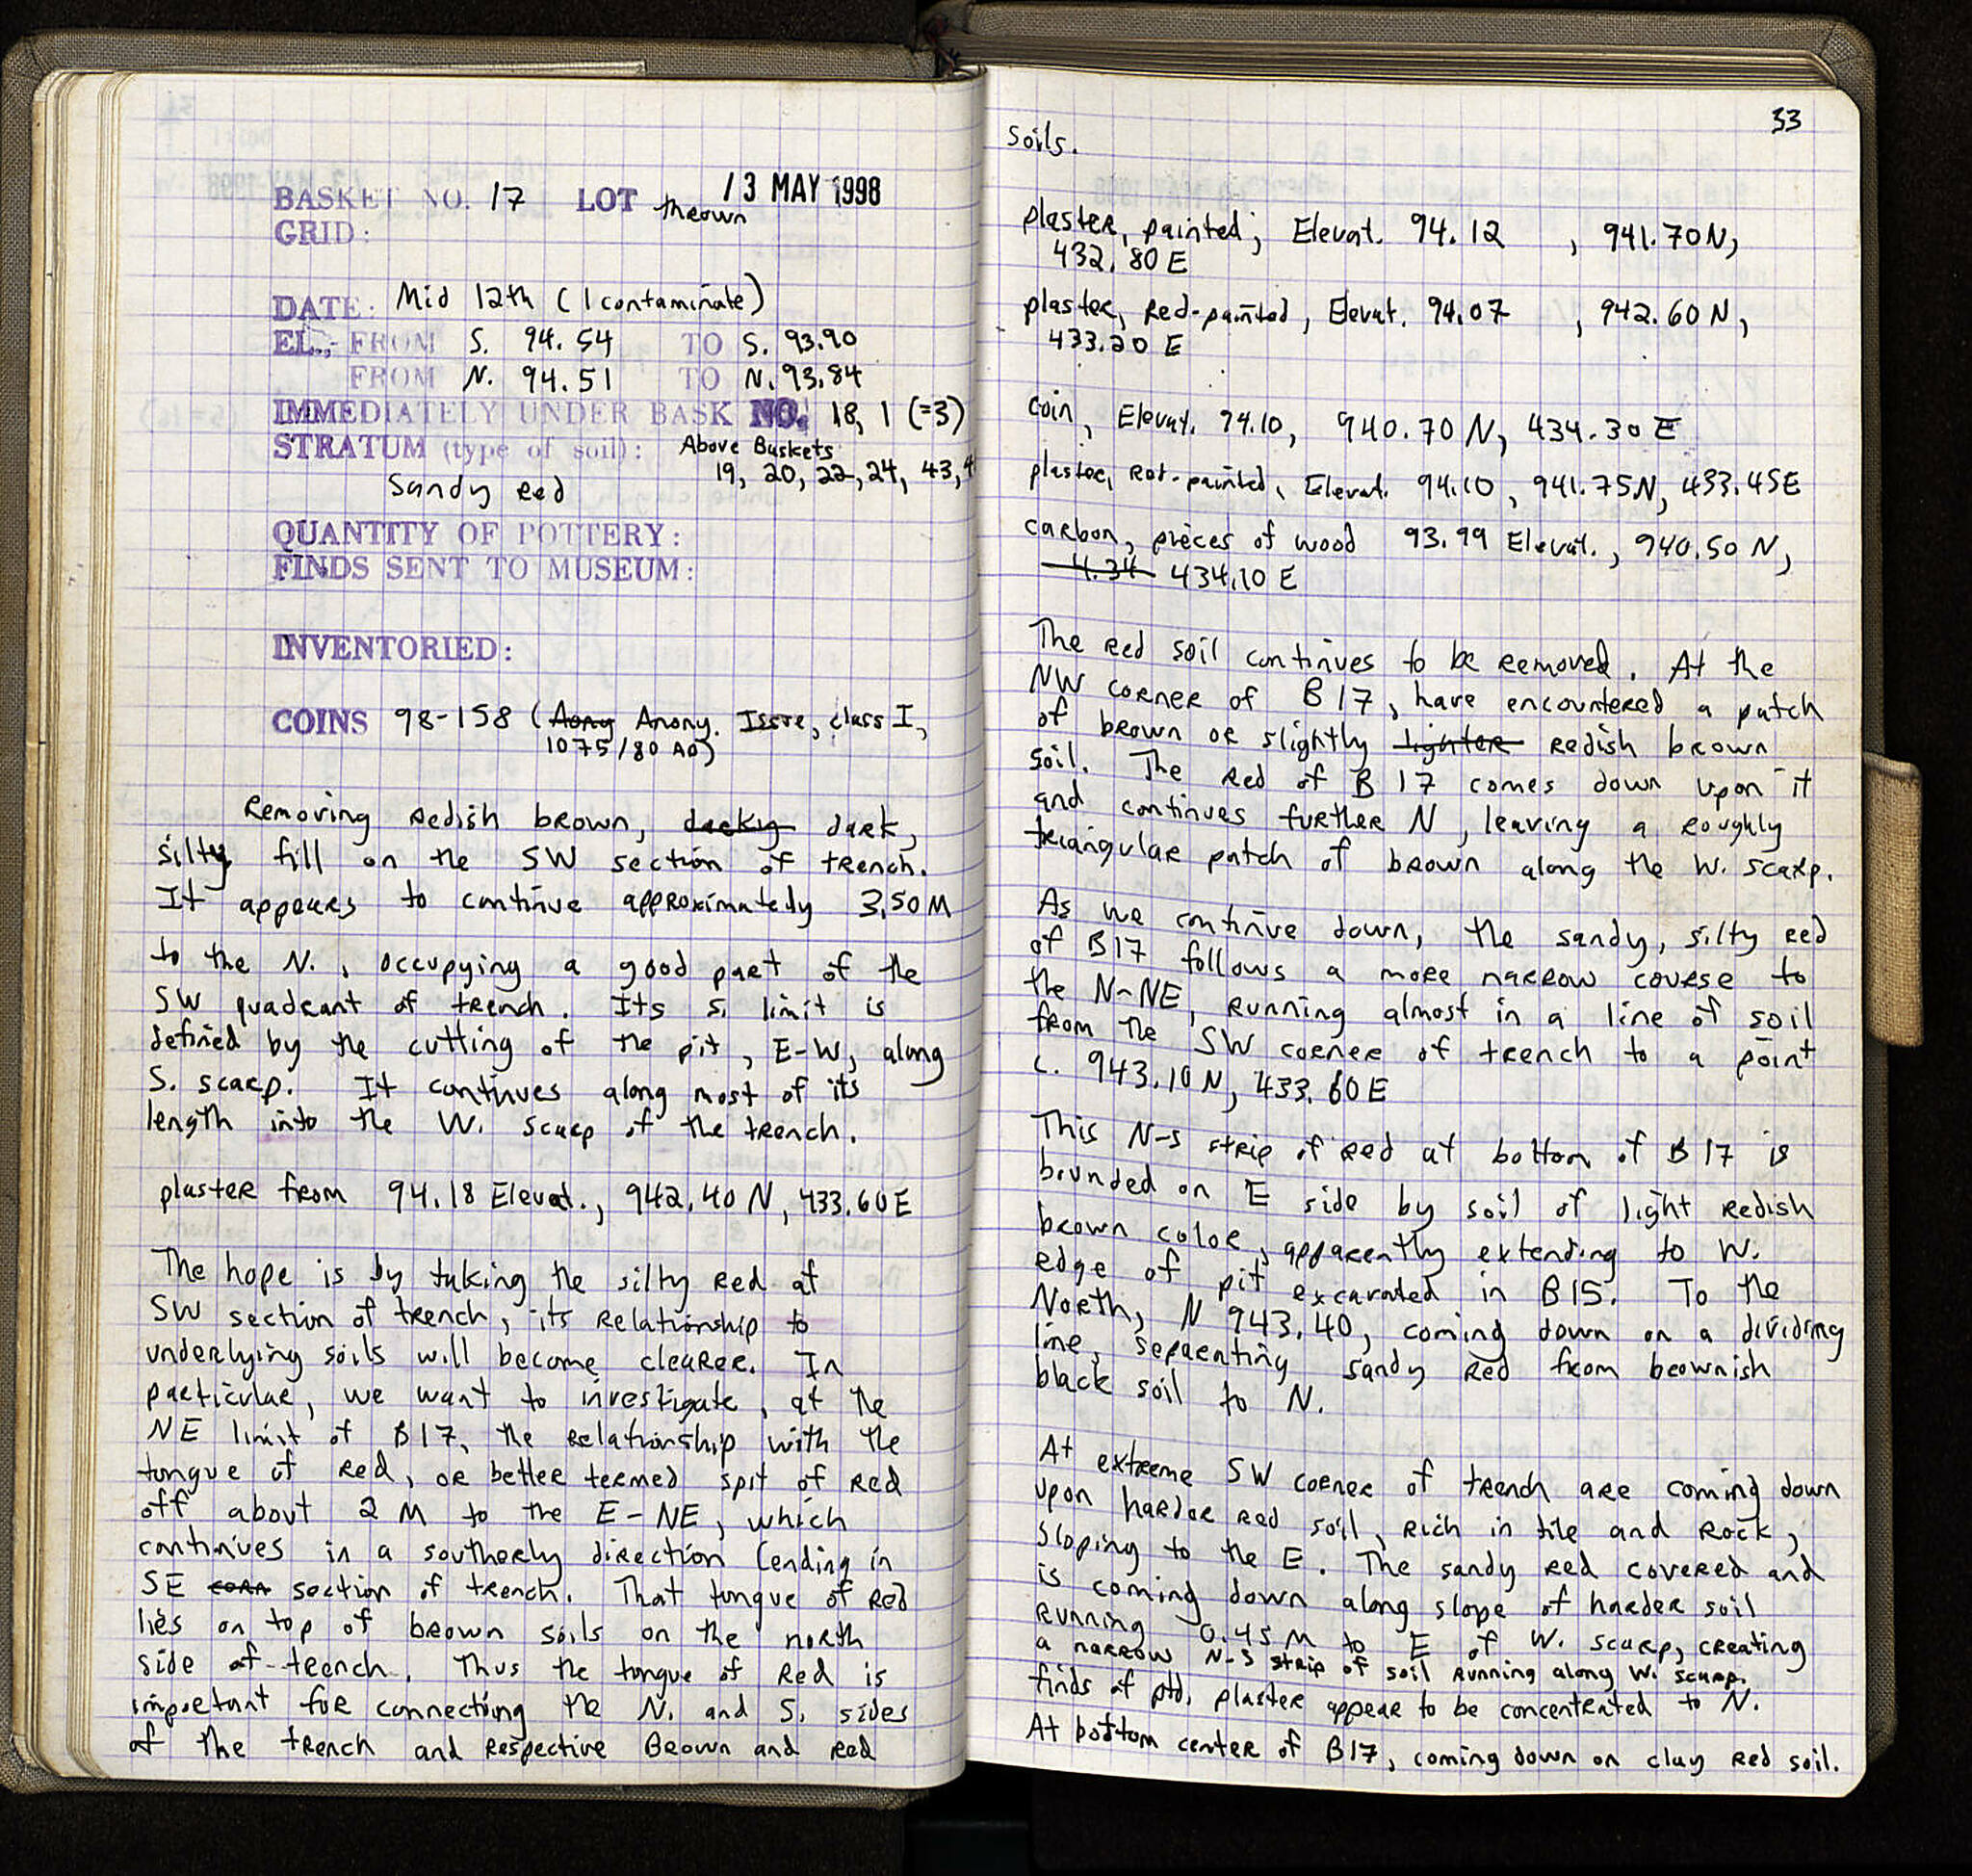 13 MAY 1998
BASKET NO. 17 LOT thrown
GRID:
DATE: Mid 12th (1 contaminate)
EL.; FROM S. 94.54 TO S. 93.90
FROM N. 94.51 TO N. 93.84
IMMEDIATELY UNDER BASK NO. 18, 1 (=3)
STRATUM (type of soil): Above Baskets
19, 20, 22, 24, 43, 4
Sandy red
QUANTITY OF POTTERY:
FINDS SENT TO MUSEUM:
INVENTORIED:
COINS 98-158 (Aony Anony. Issue, class I,
1075/80 AD)
Removing redish brown, darky dark,
silty fill on the SW section of trench.
It appears to continue approximately 3.50 M
to the N., occupying a good part of the
SW quadrant of trench. Its S. limit is
defined by the cutting of the pit, E-W, along
S. scarp. It continues along most of its
length into the W. scarp of the trench.
plaster from 94.18 Elevat., 942.40 N, 433.60 E
The hope is by taking the silty red at
SW section of trench, its relationship to
underlying soils will become clearer. In
particular, we want to investigate, at the
NE limit of B17, the relationship with the
tongue of red, or better termed spit of red
off about 2 M to the E-NE, which
continues in a southerly direction (ending in
SE corn section of trench. That tongue of red
lies on top of brown soils on the north
side of trench. Thus the tongue of red is
important for connecting the N. and S. sides
of the trench and respective Brown and red
33
soils.
plaster, painted; Elevat. 94.12 , 941.70N,
432.80 E
plaster, red-painted, Elevat. 94.07 , 942.60 N,
433.20 E
coin, Elevat. 94.10, 940.70 N, 434.30 E
plaster, red-painted, Elevat. 94.10, 941.75N, 433.45E
carbon, pieces of wood 93.99 Elevat., 940.50 N,
4.34 434.10 E
The red soil continues to be removed. At the
NW corner of B17, have encountered a patch
of brown or slightly lighter redish brown
soil. The red of B17 comes down upon it
and continues further N, leaving a roughly
triangular patch of brown along the W. scarp.
As we continue down, the sandy, silty red
of B17 follows a more narrow course to
the N-NE, running almost in a line of soil
from the SW corner of trench to a point
c. 943.10 N, 433.60 E
This N-S strip of red at bottom of B17 is
bounded on E side by soil of light redish
brown color, apparently extending to W.
edge of pit excavated in B15. To the
North, N 943.40, coming down on a dividing
line, separating sandy red from brownish
black soil to N.
At extreme SW corner of trench are coming down
upon harder red soil, rich in tile and rock,
sloping to the E. The sandy red covered and
is coming down along slope of harder soil
running 0.45 M to E of W. scarp, creating
a narrow N-S strip of soil running along W. scarp.
finds of ptd. plaster appear to be concentrated to N.
At bottom center of B17, coming down on clay red soil.